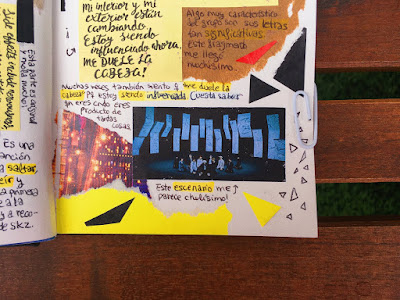 Mi interior y mi
exterior están
cambiando.
Estoy siendo
influenciado ahora,
¡ME DUELE LA
CABEZA!
Algo muy característico
del grupo son sus letras
tan significativas.
Este fragmento
me llega
muchísimo.
Muchas veces también siento q me duele la
cabeza y estoy siendo influenciada. Cuesta saber
quien eres cuando eres
producto de
tantas
cosas
Este escenario me
parece chulísimo!
Esta parte es original
y mola mucho!
Es una
canción
saltar,
y
primera
a la
y a reco-
de skz.